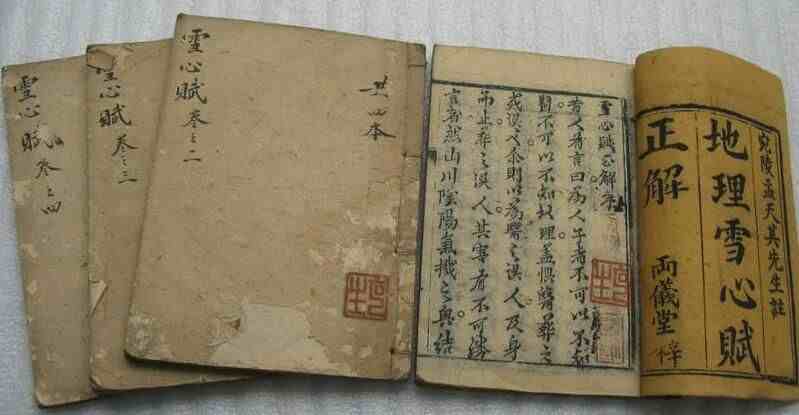 宛陵孟天其先生註
地理雪心賦
正解
両儀堂 梓
雪心賦正解序
昔人有言曰為人子者不可以不知
醫不可以不知地理蓋惧醫葬之
或誤 則以為醫之誤人及身
而止葬之誤人其害有不可勝
言者然山川陰陽氣機之奧結
共四本
雪心賦 卷之二
雪心賦 卷之三
雪心賦 卷之四